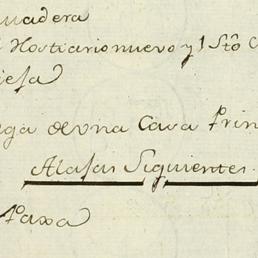 madera
Hostiario nuevo y 1 Sto C
de una Caxa Prin
Alajas Siguientes.
Taxa